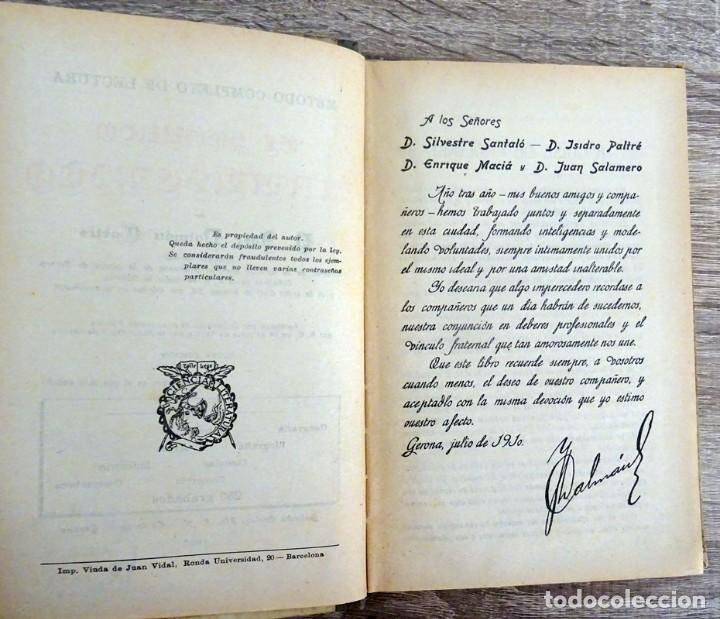 METODO COMPLETO DE LECTURA
Es propiedad del autor.
Queda hecho el depósito prevenido por la ley.
Se considerarán fraudulentos todos los ejem-
plares que no lleven varias contraseñas
particulares.
CIENCIAS LITERATURA
Imp. Viuda de Juan Vidal, Ronda Universidad, 20 — Barcelona
A los Señores
D. Silvestre Santaló — D. Isidro Paltré
D. Enrique Maciá y D. Juan Salamero
Año tras año – mis buenos amigos y compa-
ñeros – hemos trabajado juntos y separadamente
en esta ciudad, formando inteligencias y mode-
lando voluntades, siempre intimamente unidos por
el mismo ideal y por una amistad inalterable.
Yo deseara que algo imperecedero recordase a
los compañeros que un día habrán de sucedernos,
nuestra conjunción en deberes profesionales y el
vinculo fraternal que tan amorosamente nos une.
Que este libro recuerde siempre, a vosotros
cuando menos, el deseo de vuestro compañero, y
aceptadlo con la misma devoción que yo estimo
vuestro afecto.
Gerona, julio de 1910.
Dalmáu
todocoleccion